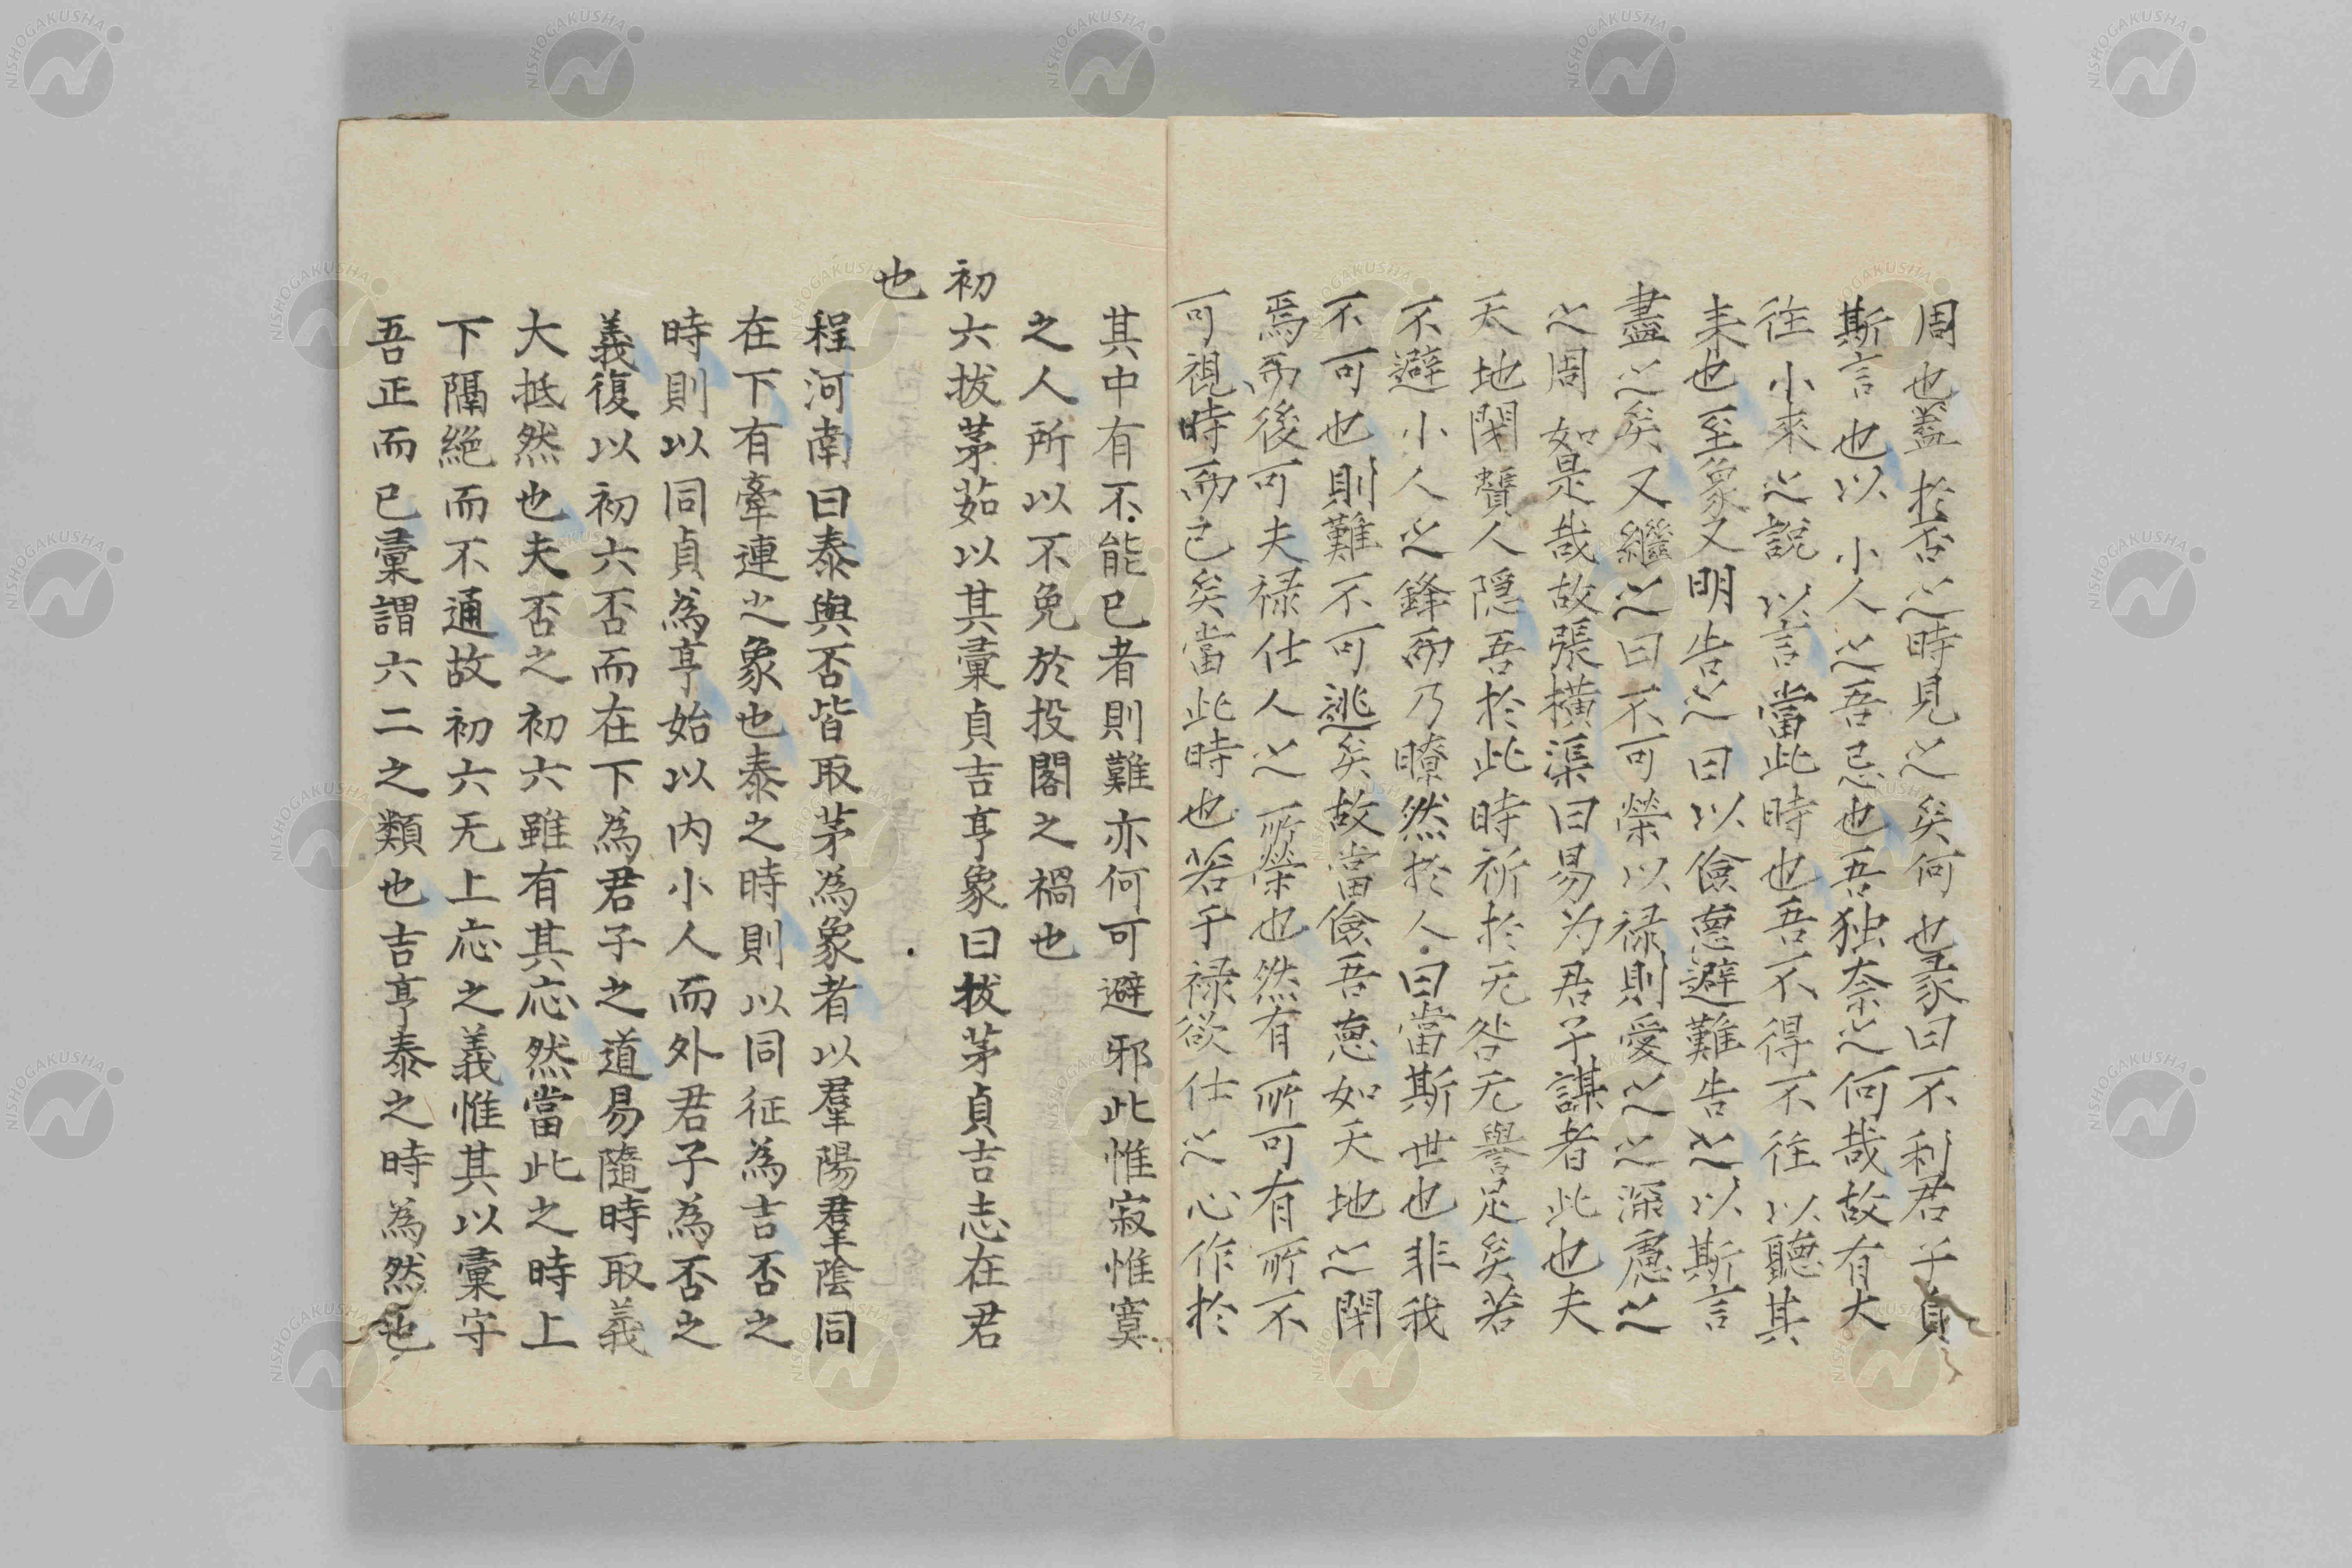 周也蓋於否之時見之矣何也彖曰不利君子貞
斯言也以小人之吾忌也吾独奈之何哉故有大
往小來之説以言當此時也吾不得不往以聴其
来也至象又明告之曰以儉悳避難告之以斯言
盡之矣又繼之曰不可榮以禄則愛之之深慮之
之周如是哉故張橫渠曰易为君子謀者此也夫
天地閉賢人隠吾於此時祈於无咎无譽足矣若
不避小人之鋒而乃瞭然於人曰當斯世也非我
不可也則難不可逃矣故當儉吾悳如天地之閉
焉而後可夫禄仕人之所榮也然有所可有所不
可視時而已矣當此時也若乎禄欲仕之心作於
其中有不能已者則難亦何可避邪此惟寂惟寞
之人所以不免於投閣之禍也
初六拔茅茹以其彙貞吉亨象曰拔茅貞吉志在君
也
程河南曰泰與否皆取茅為象者以羣陽羣陰同
在下有牽連之象也泰之時則以同征為吉否之
時則以同貞為亨始以内小人而外君子為否之
義復以初六否而在下為君子之道易隨時取義
大抵然也夫否之初六雖有其応然當此之時上
下隔絶而不通故初六无上応之義惟其以彙守
吾正而已彙謂六二之類也吉亨泰之時為然也
NISHOGAKUSHA